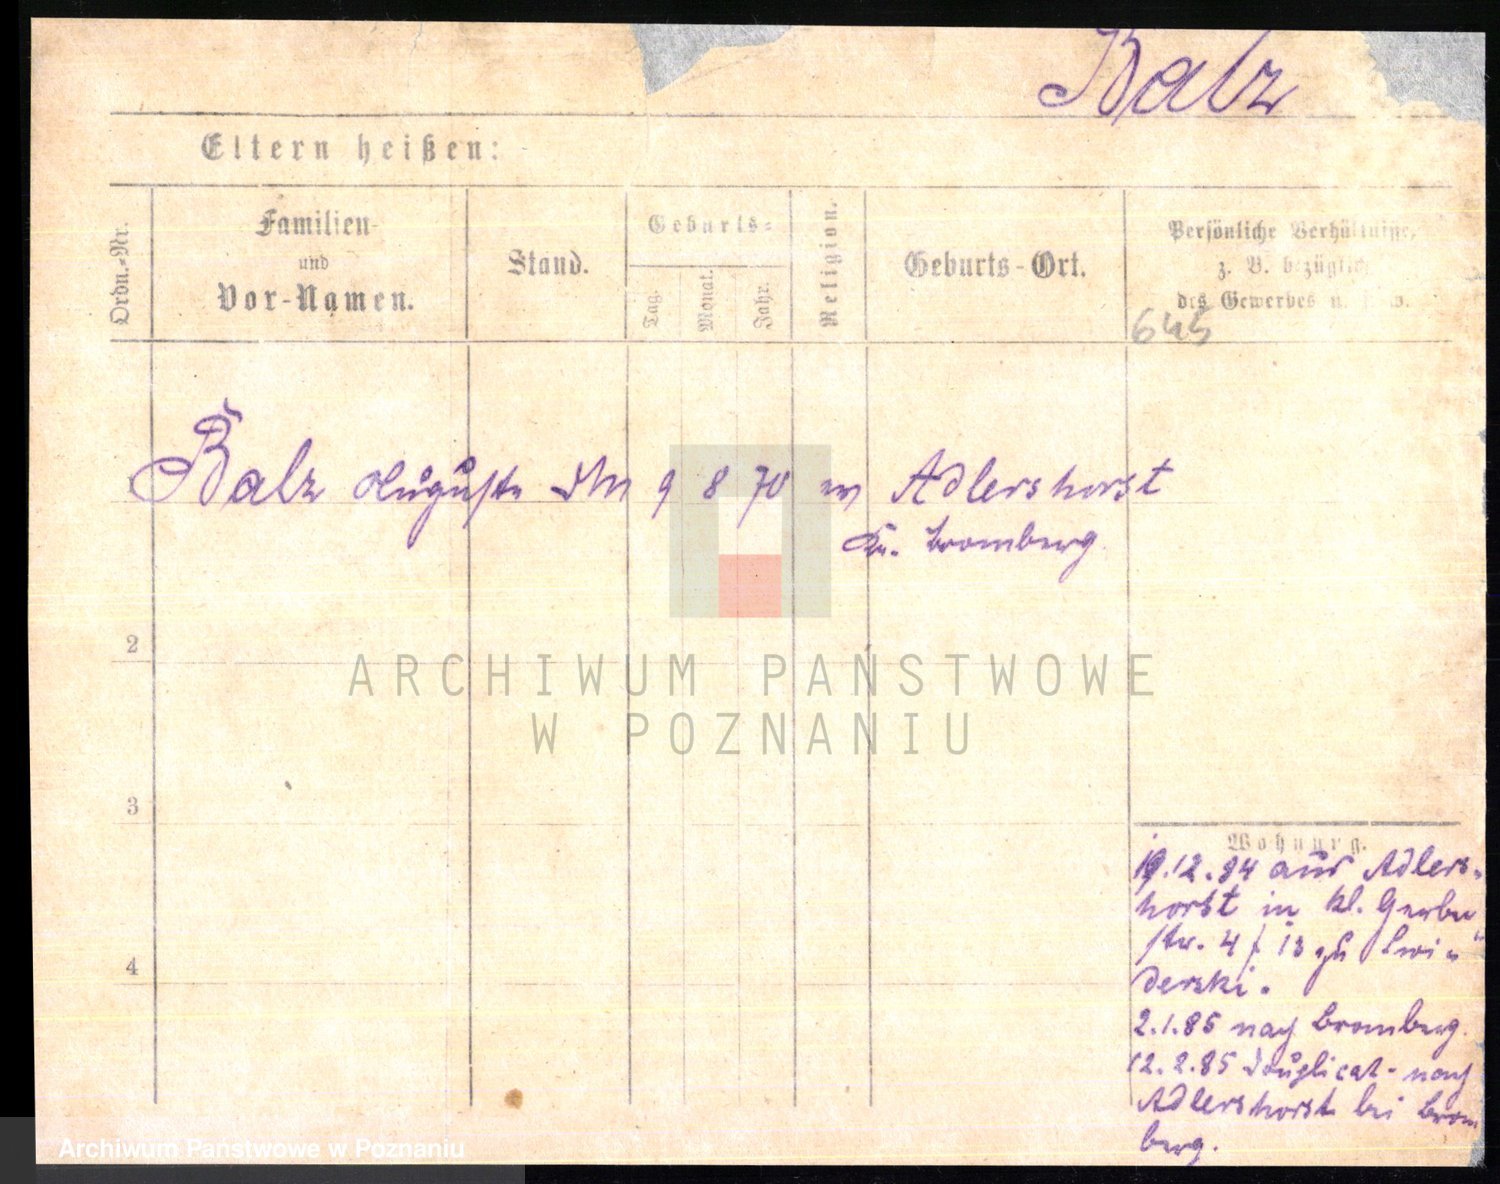 Balz
Eltern heißen:
Ordn.-Nr.
Familien-
und
Vor-Namen.
Stand.
Geburts-
Tag.
Monat.
Jahr.
Religion.
Geburts-Ort.
Persönliche Verhältnisse,
z. B. bezüglich
des Gewerbes u.
645
Balz Auguste 9 8 70 ev Adlershorst
Kr. Bromberg
2
3
4
ARCHIWUM PAŃSTWOWE
W POZNANIU
Wohnung.
19.12.84 aus Adlers-
horst in kl. Gerber
str. 4 / 13 zu Swi-
derski.
2.1.85 nach Bromberg.
12.2.85 Duplicat - nach
Adlershorst bei Brom
berg.
Archiwum Państwowe w Poznaniu